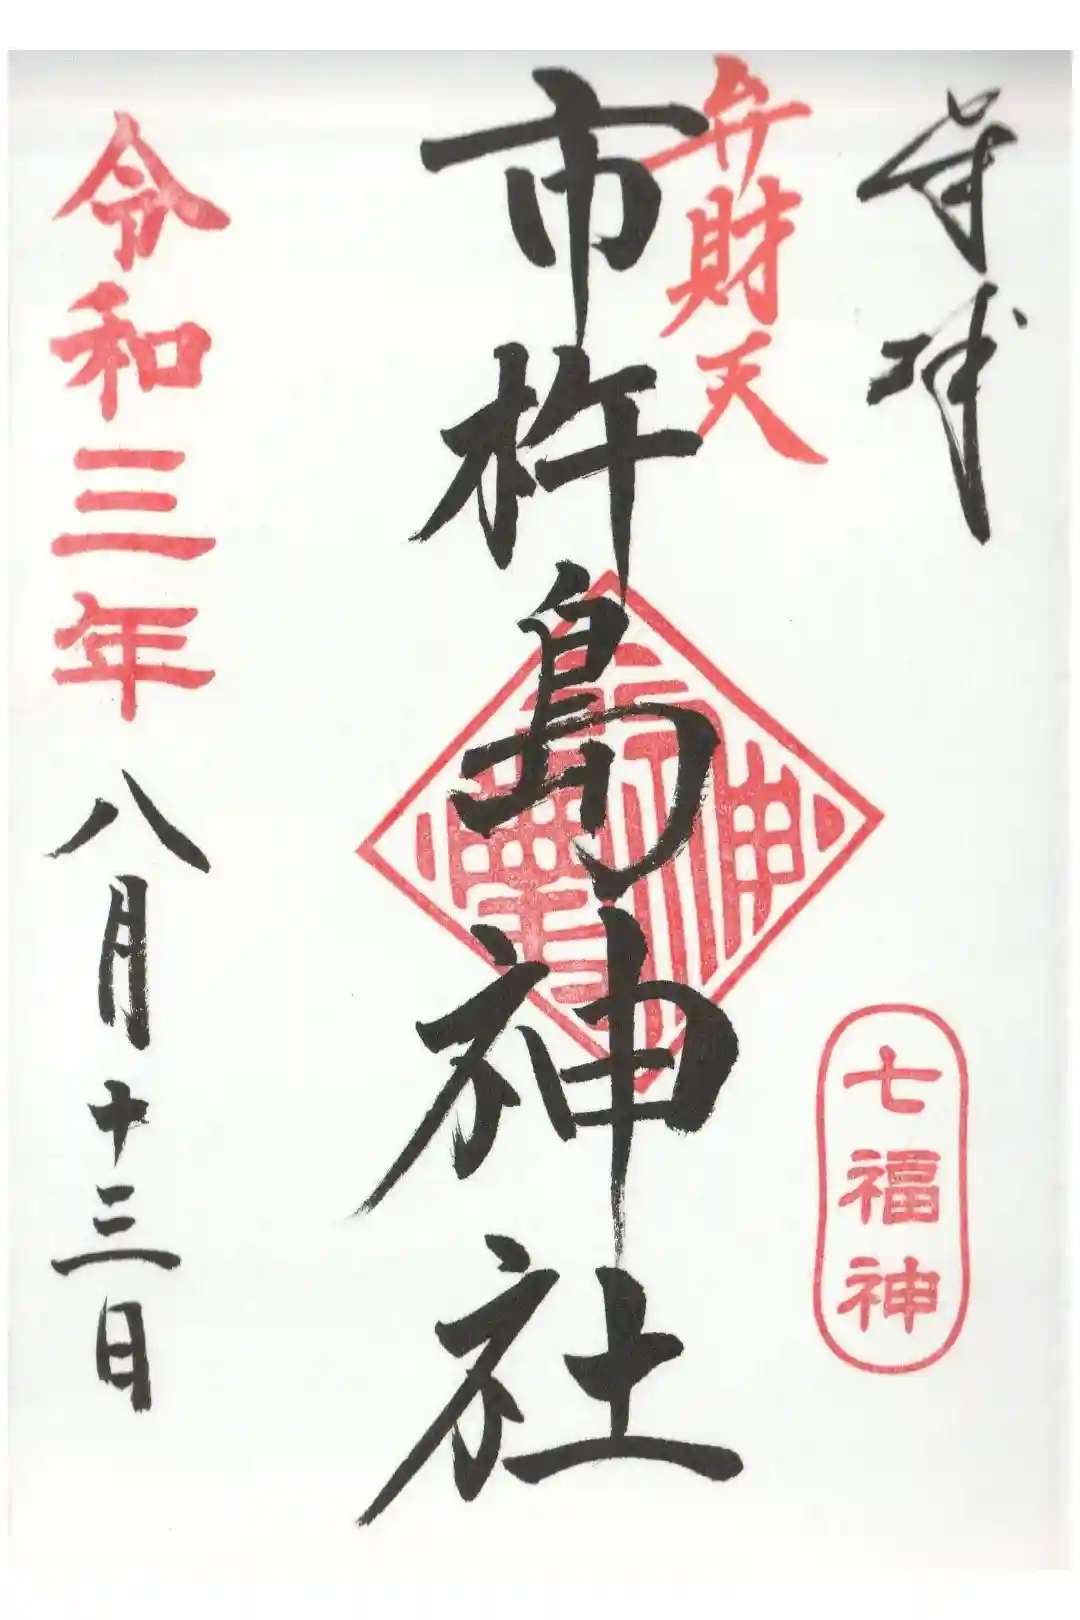 奉拝
七福神
弁財天
市杵島神社
令和三年八月十三日